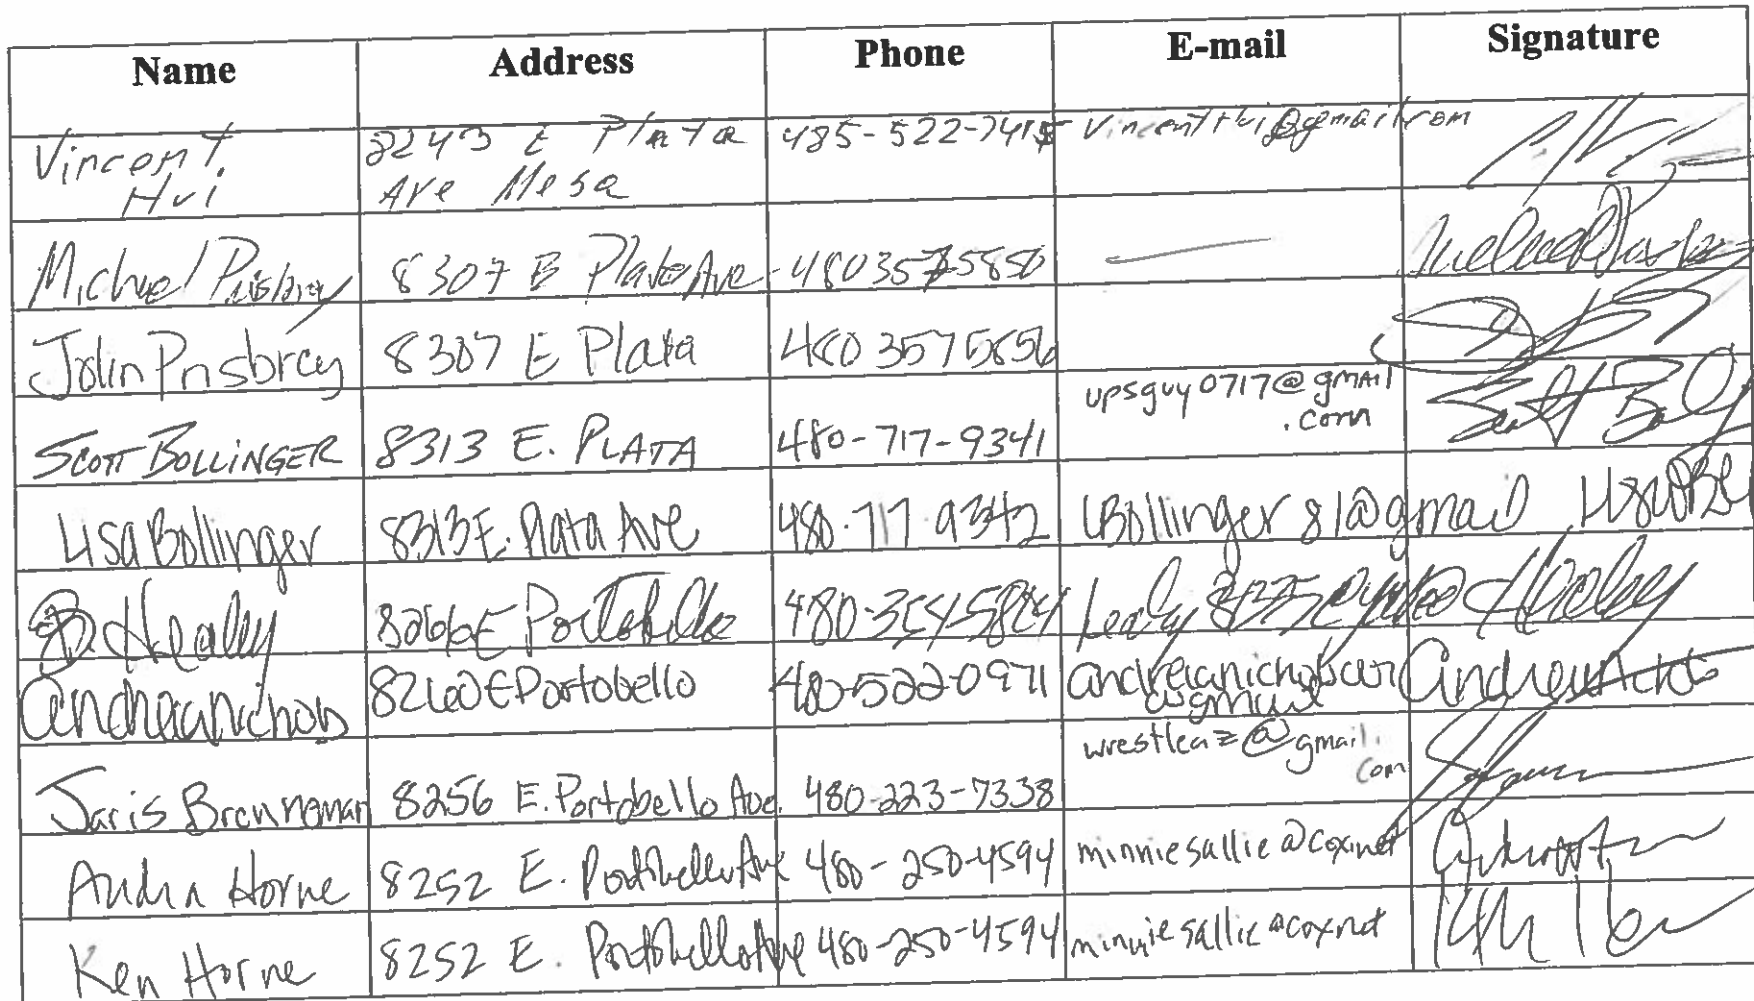 Name Address Phone E-mail Signature
Vincent Hui 8243 E Plata Ave Mesa 485-522-7415 VincentHui@gmail.com
Michael Prisbrey 8307 E Plata Ave 480 357 5850
John Prisbrey 8307 E Plata 480 357 5856
SCOTT BOLLINGER 8313 E. PLATA 480-717-9341 upsguy0717@gmail.com Scott
Lisa Bollinger 8313 E. Plata Ave 480.717.9342 LBollinger81@gmail
Healey E Portobello Healey
Andreanichols 8260 E Portobello 480-522-0971
Jaris Brenneman 8256 E. Portobello Ave. 480-223-7338 wrestleaz@gmail.com
Audra Horne 8252 E. Portobello Ave 480-250-4594 minniesallie@cox.net
Ken Horne 8252 E. Portobello Ave 480-250-4594 minniesallie@coxnet